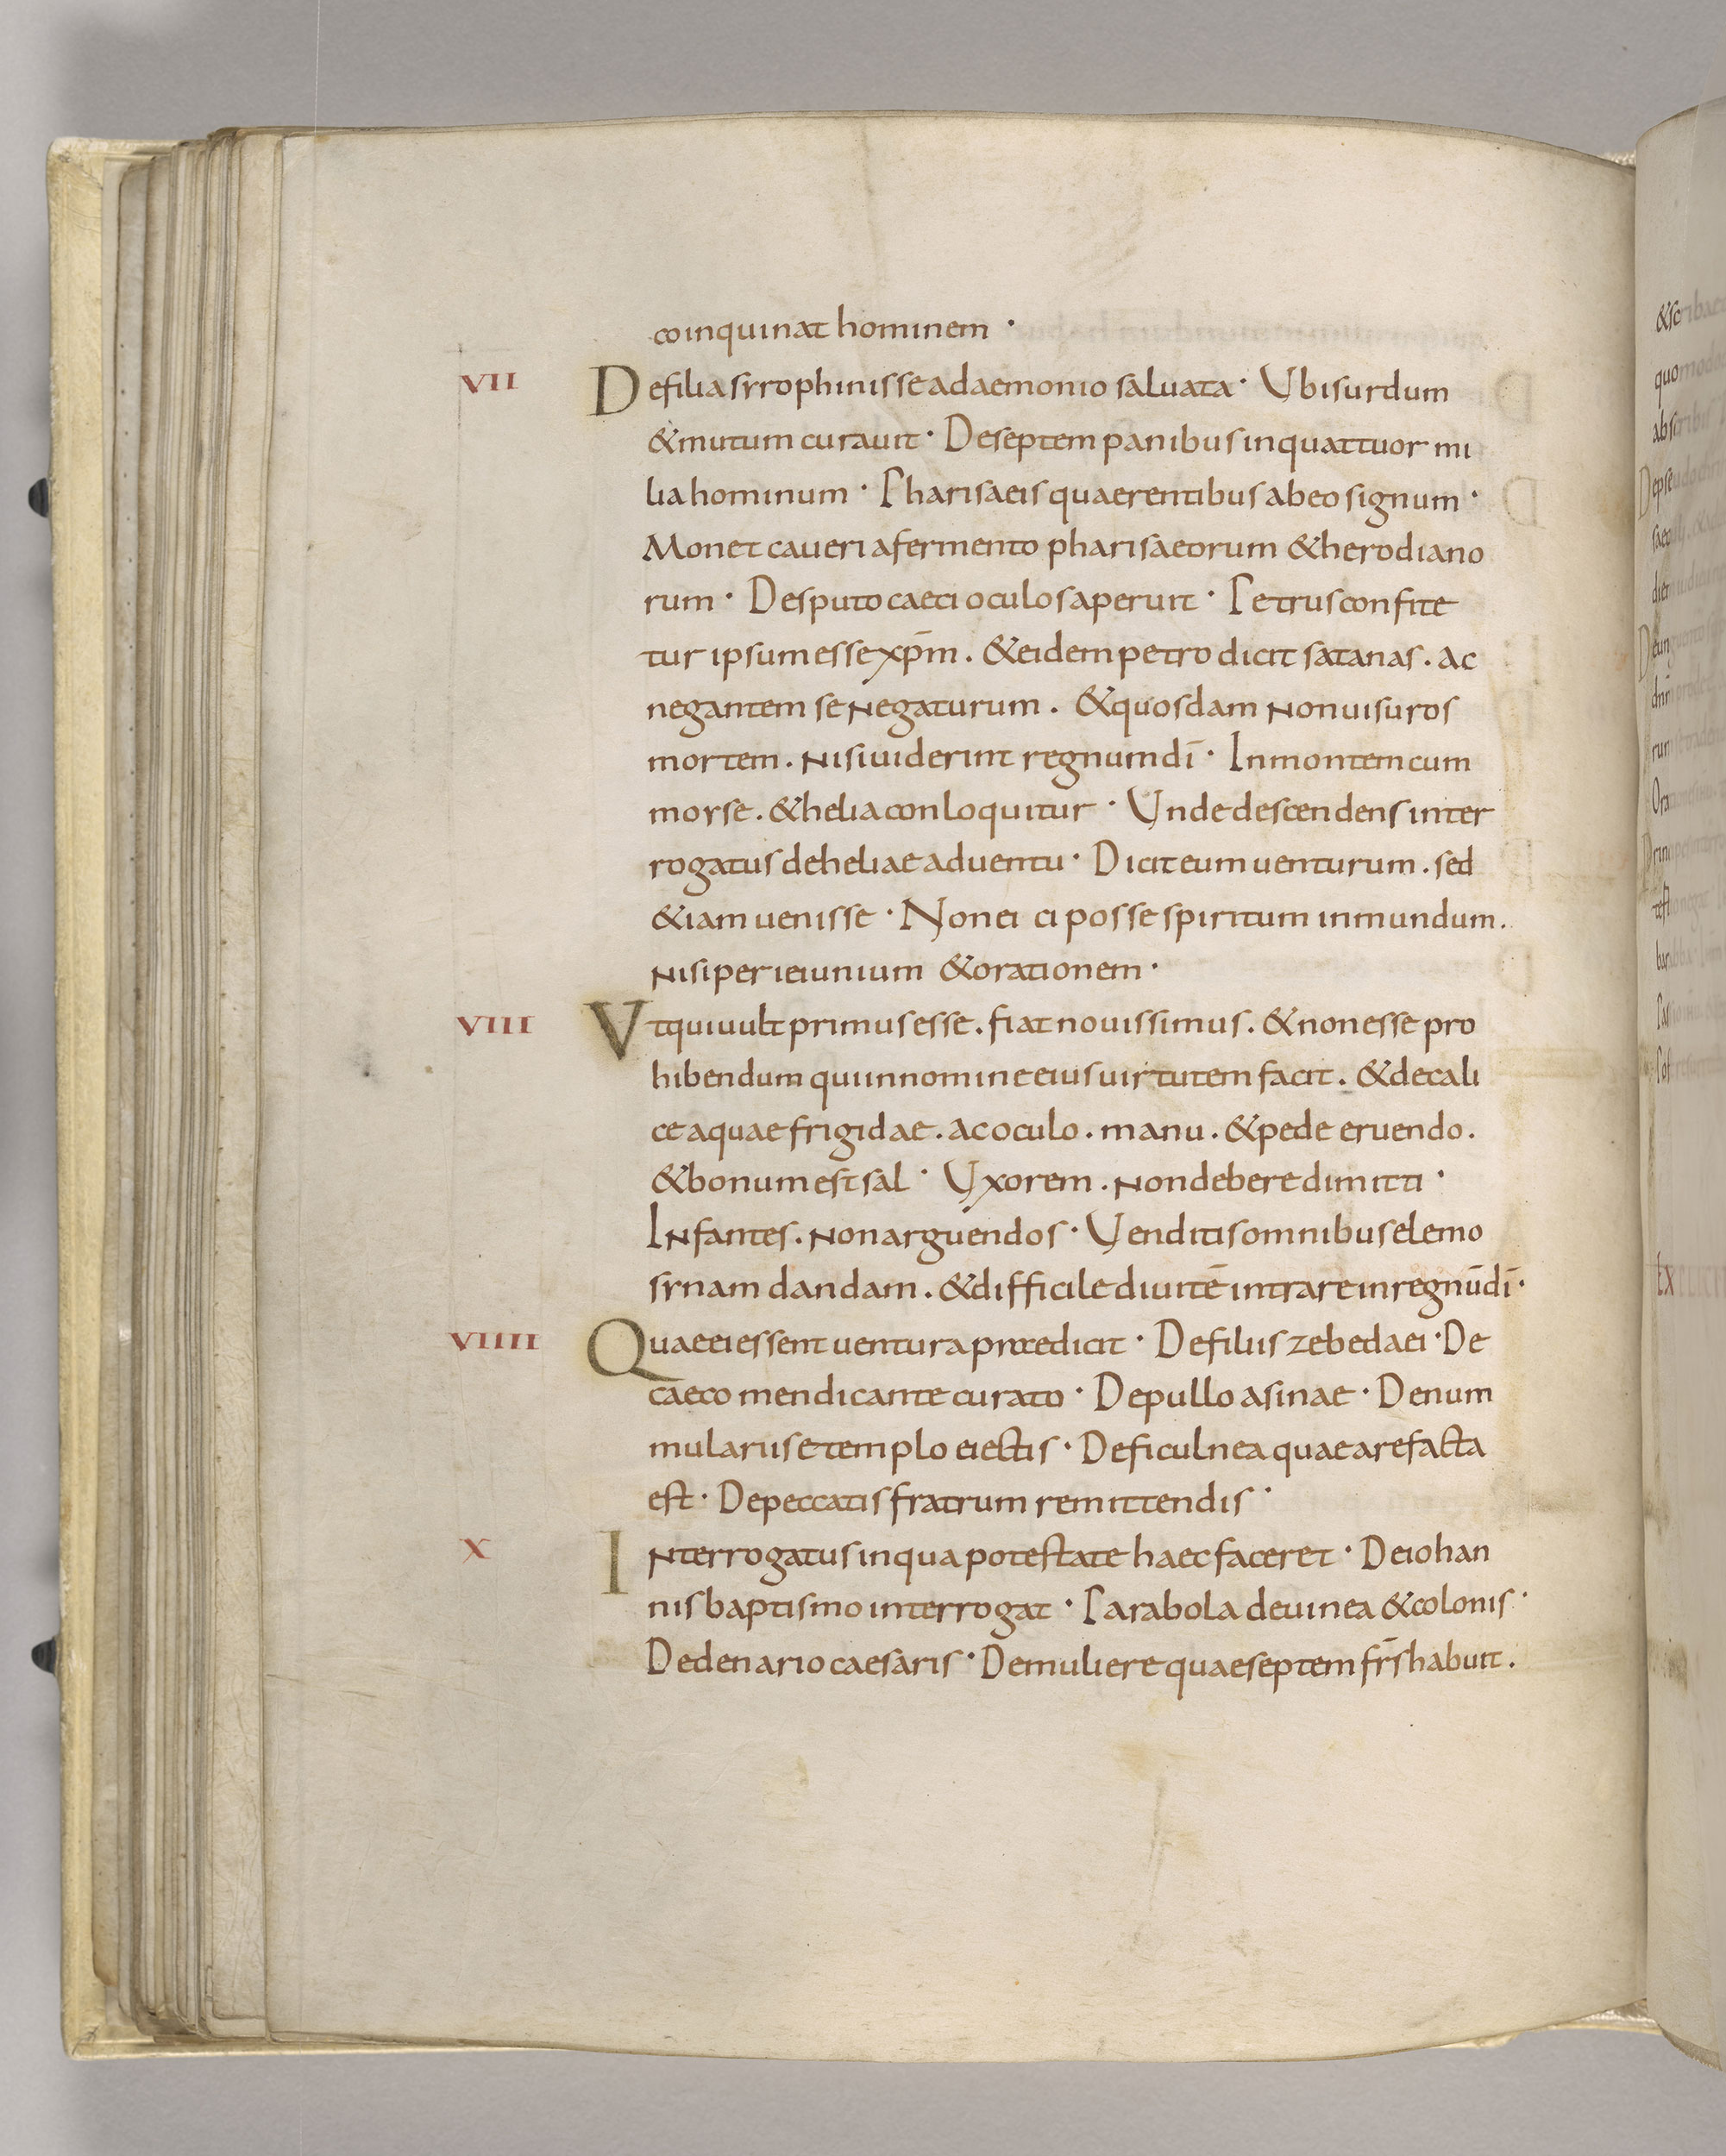 coinquinat hominem ·
VII Defilia syrophinisse adaemonio saluata · Ubi surdum
& mutum curauit · De septem panibus in quattuor mi
lia hominum · Pharisaeis quaerentibus ab eo signum ·
Monet caueri a fermento pharisaeorum & herodiano
rum · De sputo caeci oculos aperuit · Petrus confite
tur ipsum esse xp̄m . & eidem petro dicit satanas . ac
negantem se negaturum . & quosdam non uisuros
mortem . nisi uiderint regnum dī · In montem cum
moyse . & helia conloquitur · Unde descendens inter
rogatus de heliae aduentu · Dicit eum uenturum . sed
& iam uenisse · Non ei ci posse spiritum inmundum .
nisi per ieiunium & orationem ·
VIII Ut qui uult primus esse . fiat nouissimus . & non esse pro
hibendum qui in nomine eius uirtutem facit . & de cali
ce aquae frigidae . ac oculo . manu . & pede eruendo .
& bonum est sal · Uxorem . non debere dimitti ·
Infantes . non arguendos · Venditis omnibus elemo
synam dandam . & difficile diuitē intrare in regnū dī ·
VIIII Quae ei essent uentura praedicit · De filiis zebedaei · De
caeco mendicante curato · De pullo asinae · De num
mulariis e templo eiectis · De ficulnea quae arefacta
est · De peccatis fratrum remittendis ·
X Interrogatus in qua potestate haec faceret · De iohan
nis baptismo interrogat · Parabola de uinea & colonis ·
De denario caesaris · De muliere quae septem fr̄s habuit .